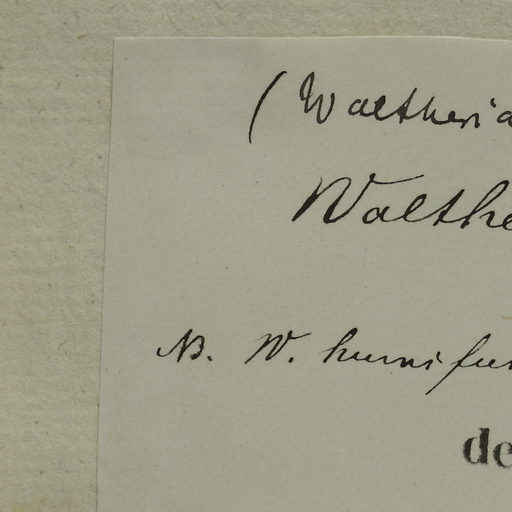 (Waltheria
Walthe
NB. W. humifus
de